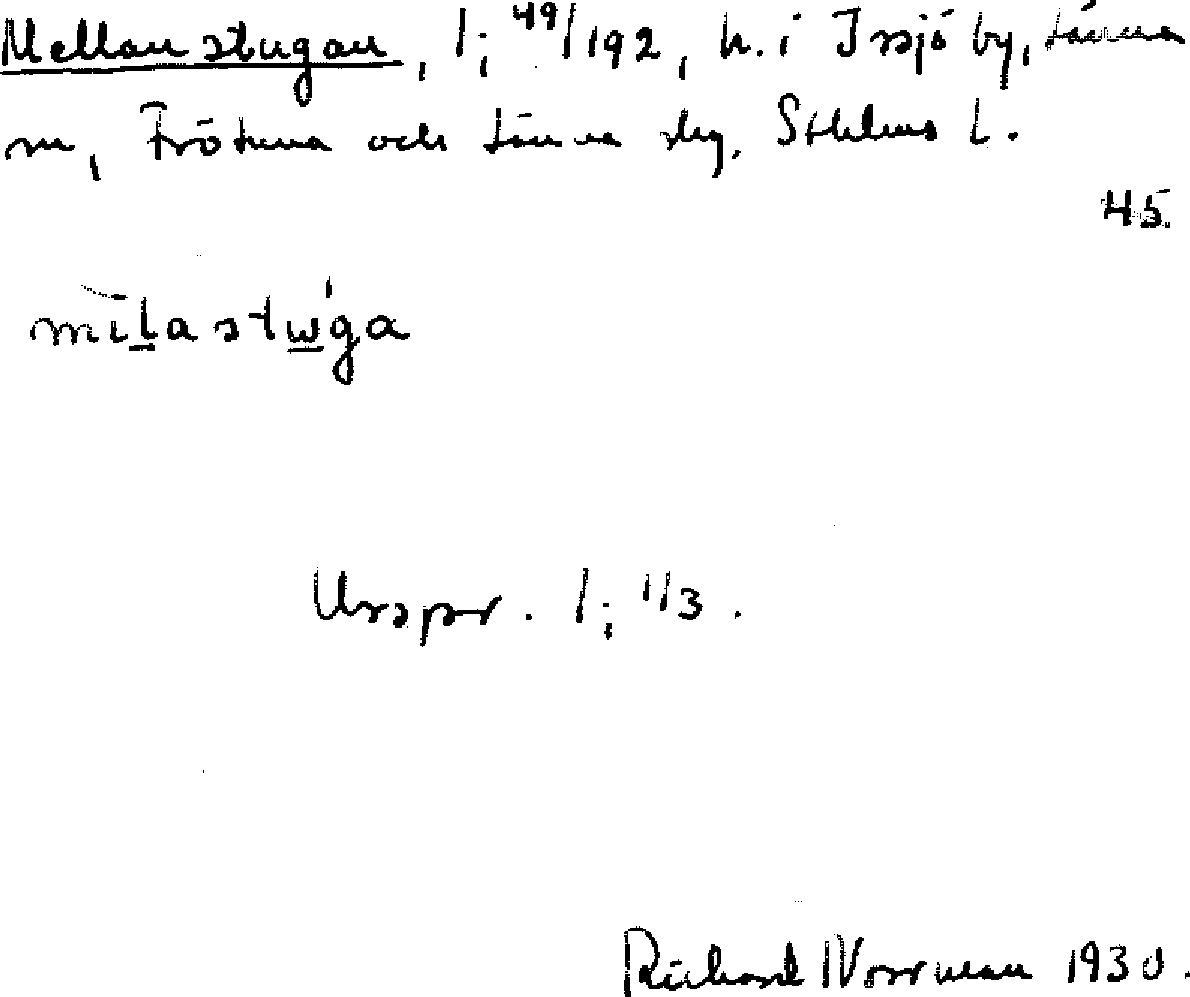 Mellanstugan, 1; 49/192, h. i Issjö by, Länna
sn, Frötuna och Länna skg, Sthlms L.
45.
mìlastẃga
Urspr. 1; 1/3.
Richard Norrman 1930.